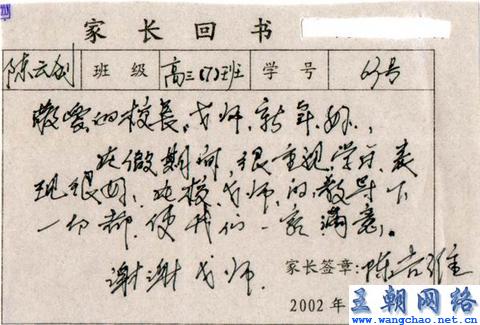 家长回书
陈云刚 班级 高三(7)班 学号 63号
敬爱的校长、老师、新年好,
在假期间,很重视学习、表
现很好、在校、老师的教导下
一切都使我们一家满意。
谢谢老师.
家长签章: 陈
2002年
王朝网络
www.wangchao.net.cn